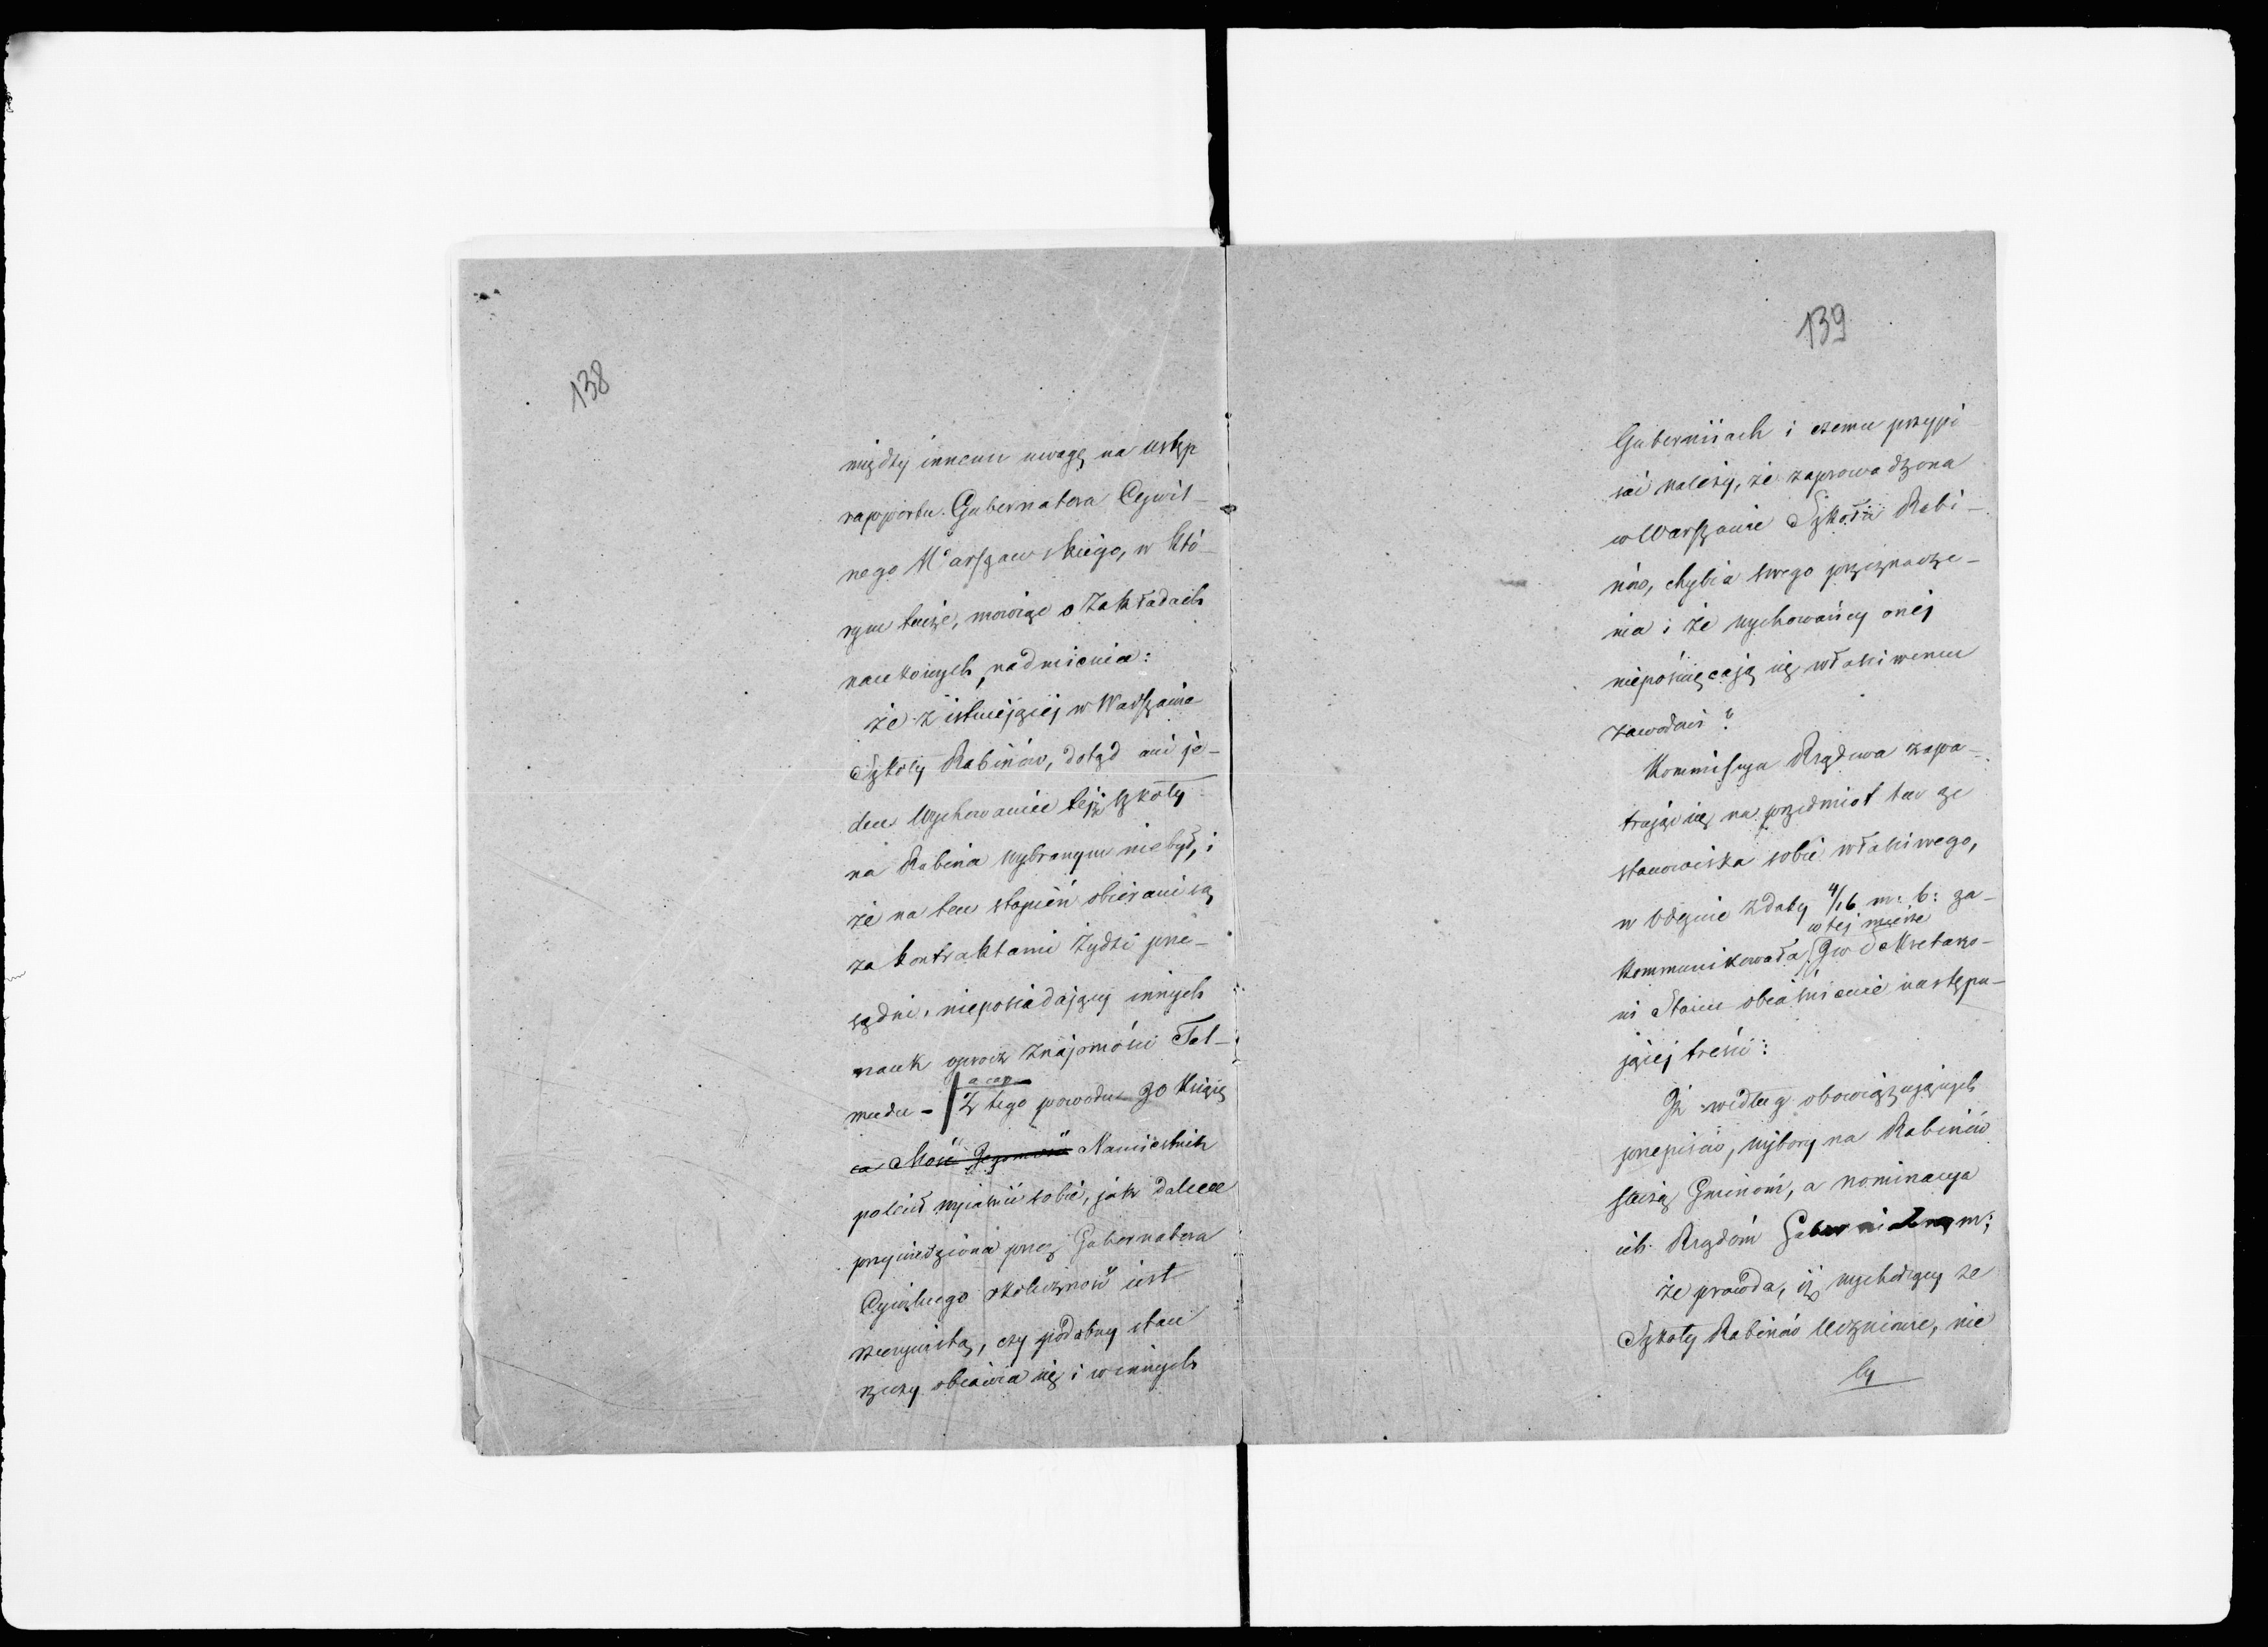 138
między innemi uwagę na ustęp
rapportu Gubernatora Cywil-
nego Warszawskiego, w któ-
rym tenże, mowiąc o Zakładach
naukowych, nadmienia:
że z istniejącej w Warszawie
Szkoły Rabinów, dotąd ani je-
den Wychowaniec tejże szkoły
na Rabina wybranym niebył, i
że na ten stopień obierani są
za kontraktami Żydzi prze-
sądni, nieposiadający innych
nauk oprocz znajomości Tal-
mudu -
Z tego powodu JO Xiążę
ca Mość Jegomość Namiestnik
polecił wyjaśnić sobie, jak dalece
przywiedziona przez Gubernatora
Cywilnego okoliczność jest
rzeczywistą, czy podobny stan
rzeczy objawia się i w innych
139
Guberniiach i czemu przypi
sać należy, że zaprowadzona
w Warszawie Szkoła Rabi-
nów, chybia swego przeznacze-
nia i że wychowańcy onej
nieposwięcają się właściwemu
zawodowi?
Kommissya Rządowa zapa-
trując się na przedmiot ten ze
stanowiska sobie właściwego,
w Odezwie z daty 4/16 m: b: za-
w tej mierze
kommunikowała JW Sekretarzo-
wi Stanu objaśnienie następu-
jącej treści:
Iż według obowiązujących
przepisów, wybory na Rabinów
służą Gminom, a nominacya
ich Rządom Gubernialnym;
że prawda, iż wychodzący ze
Szkoły Rabinów Uczniowie, nie
by